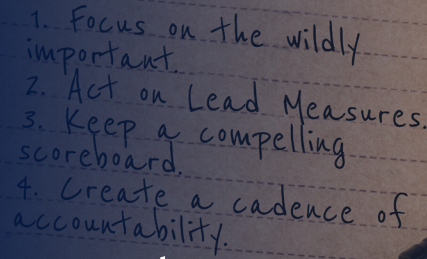 1. Focus on the wildly
important.
2. Act on Lead Measures.
3. Keep a compelling
scoreboard.
4. Create a cadence of
accountability.